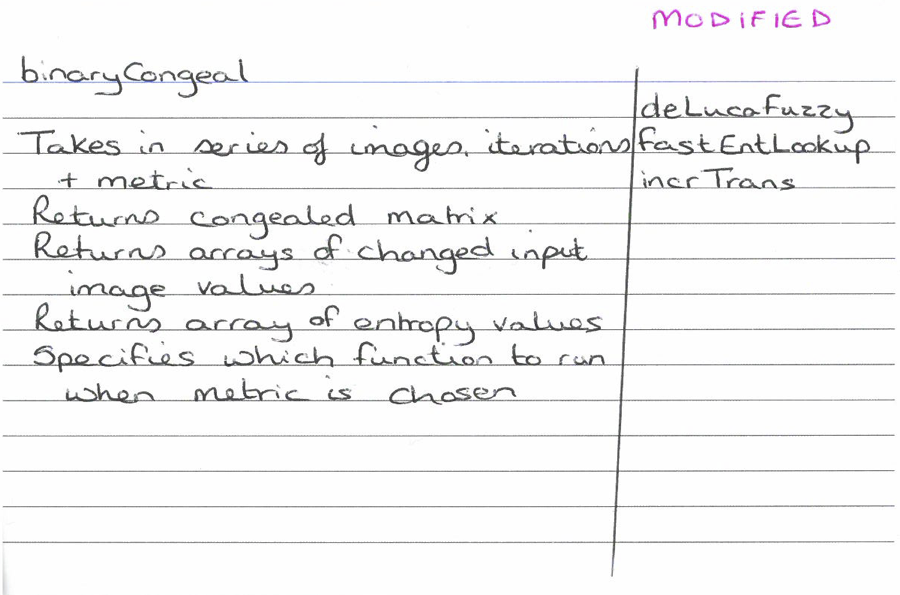 MODIFIED
binaryCongeal
Takes in series of images, iterations
+ metric
Returns congealed matrix
Returns arrays of changed input
image values
Returns array of entropy values
Specifies which function to run
when metric is chosen
deLucaFuzzy
fastEntLookup
incrTrans